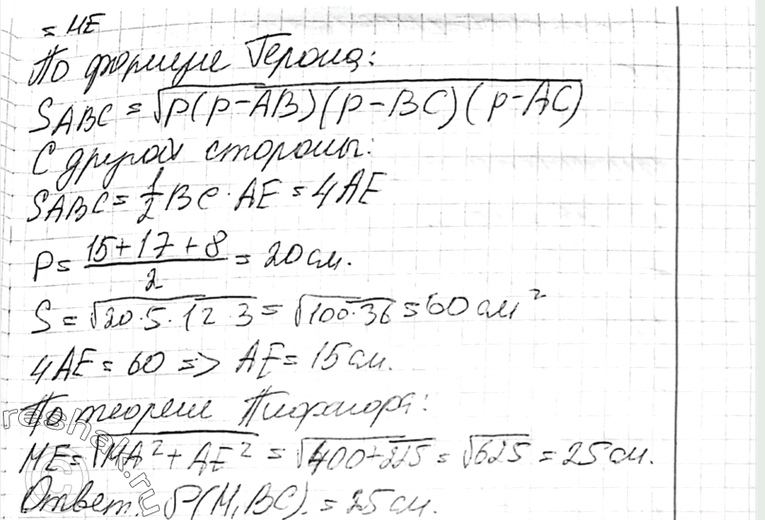 = ME
По формуле Герона:
SABC = √P(P-AB)(P-BC)(P-AC)
С другой стороны:
SABC = 1/2 BC · AE = 4AE
P = (15+17+8)/2 = 20 см.
S = √20·5·12·3 = √100·36 = 60 см²
4AE = 60 => AE = 15 см.
По теореме Пифагора:
ME = √MA² + AE² = √400+225 = √625 = 25 см.
Ответ: P(M, BC) = 25 см.
reshak.ru